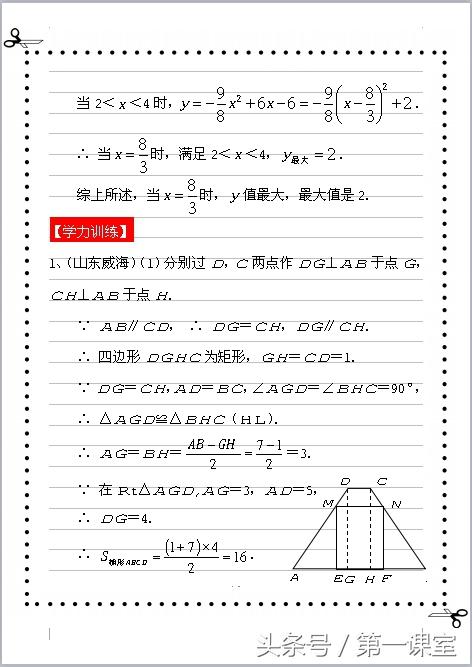 当 2＜x＜4时, y=-9/8x²+6x-6=-9/8(x-8/3)²+2.
∴ 当x=8/3时,满足 2＜x＜4, y最大=2.
综上所述,当x=8/3时, y值最大,最大值是2.
【学力训练】
1、(山东威海)(1)分别过 D, C两点作 DG⊥AB于点 G,
CH⊥AB于点 H.
∵ AB∥CD, ∴ DG=CH, DG∥CH.
∴ 四边形 DGHC为矩形, GH=CD=1.
∵ DG=CH, AD=BC, ∠AGD=∠BHC=90°,
∴ △AGD≌△BHC(HL).
∴ AG=BH=(AB-GH)/2=(7-1)/2=3.
∵ 在Rt△AGD, AG=3, AD=5,
∴ DG=4.
∴ S梯形ABCD=(1+7)×4/2=16.
D C
M N
A E G H F
头条号 / 第一课室